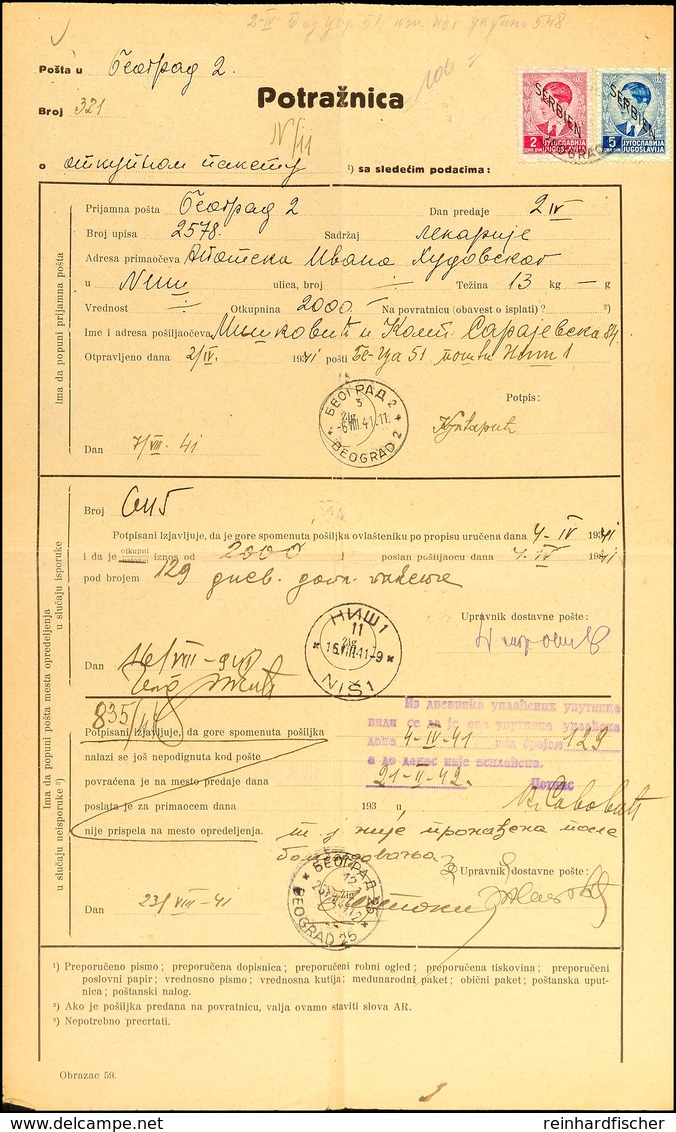 Pošta u Београд 2.
Broj 321
Potražnica
IV/11
о откупном пакету ¹) sa sledećim podacima:
SERBIEN
2 ЈУГОСЛАВИЈА
JUGOSLAVIJA
SERBIEN
5 ЈУГОСЛАВИЈА
JUGOSLAVIJA
Ima da popuni prijamna pošta
Prijamna pošta Београд 2 Dan predaje 2 IV
Broj upisa 2578. Sadržaj лекарије
Adresa primaočeva Апотека Ивана Худовског
u Ниш ulica, broj ÷ Težina 13 kg — g
Vrednost ÷ Otkupnina 2000.— Na povratnicu (obavest o isplati)? ²)
Ime i adresa pošiljaočeva Мишковић и Комп. Сарајевска 84.
Otpravljeno dana 2/IV. 1941 pošti 51 Ниш 1
Potpis:
БЕОГРАД 2
3
-6.VIII.41.11.
BEOGRAD 2
Dan 7/VIII-41
Ima da popuni pošta mesta opredeljenja
u slučaju isporuke
Broj
Potpisani izjavljuje, da je gore spomenuta pošiljka ovlašteniku po propisu uručena dana 4-IV 1941
i da je otkupni iznos od 2000 poslan pošiljaocu dana 4.IV 1941
pod brojem 129 днев.
НИШ 1
11
16.VIII.41-9
NIŠ 1
Upravnik dostavne pošte:
Dan 16/VIII-941
835/41
u slučaju neisporuke ³)
Potpisani izjavljuje, da gore spomenuta pošiljka
nalazi se još nepodignuta kod pošte
povraćena je na mesto predaje dana
poslata je za primaocem dana 193 u
nije prispela na mesto opredeljenja.
Из дневника уплаћених упутница
види се да је ова упутница уплаћена
дана 4-IV-41 под бројем 129
а до данас није исплаћена.
21-II-42. Потпис
т.ј није пронађена после
бомбардовања
Upravnik dostavne pošte:
БЕОГРАД 25
12
BEOGRAD 25
Dan 23/VIII-41
¹) Preporučeno pismo; preporučena dopisnica; preporučeni robni ogled; preporučena tiskovina; preporučeni
poslovni papir; vrednosno pismo; vrednosna kutija; međunarodni paket; obični paket; poštanska uput-
nica; poštanski nalog.
²) Ako je pošiljka predana na povratnicu, valja ovamo staviti slova AR.
³) Nepotrebno precrtati.
Obrazac 59.
reinhardfischer